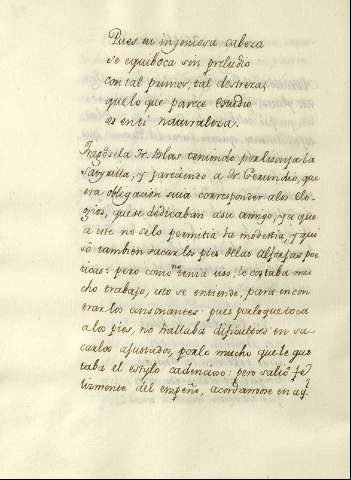 Pues tu injeniosa cabeza
se equiboca sin preludio
con tal primor, tal destreza,
que lo que parece estudio
es en ti naturaleza.
Tragósela Fr. Blas teniendo por lisonja la
Satyrilla, y pareciendo a Fr. Gerundio, que
era obligación suia corresponder a los elo-
gios, que se dedicaban a su amigo, ya que
a este no se lo permitia la modestia, y qui
so tambien sacar los pies delas alforjas poe
ticas: pero como no tenia uso, le costaba mu
cho trabajo, esto se entiende, para encon
trar los consonantes: pues por lo que toca
a los pies, no hallaba dificultad en sa-
carlos ajustados, por lo mucho que le gus
taba el estylo cadencioso: pero salió fe
lizmente del empeño, acordandose en aql.